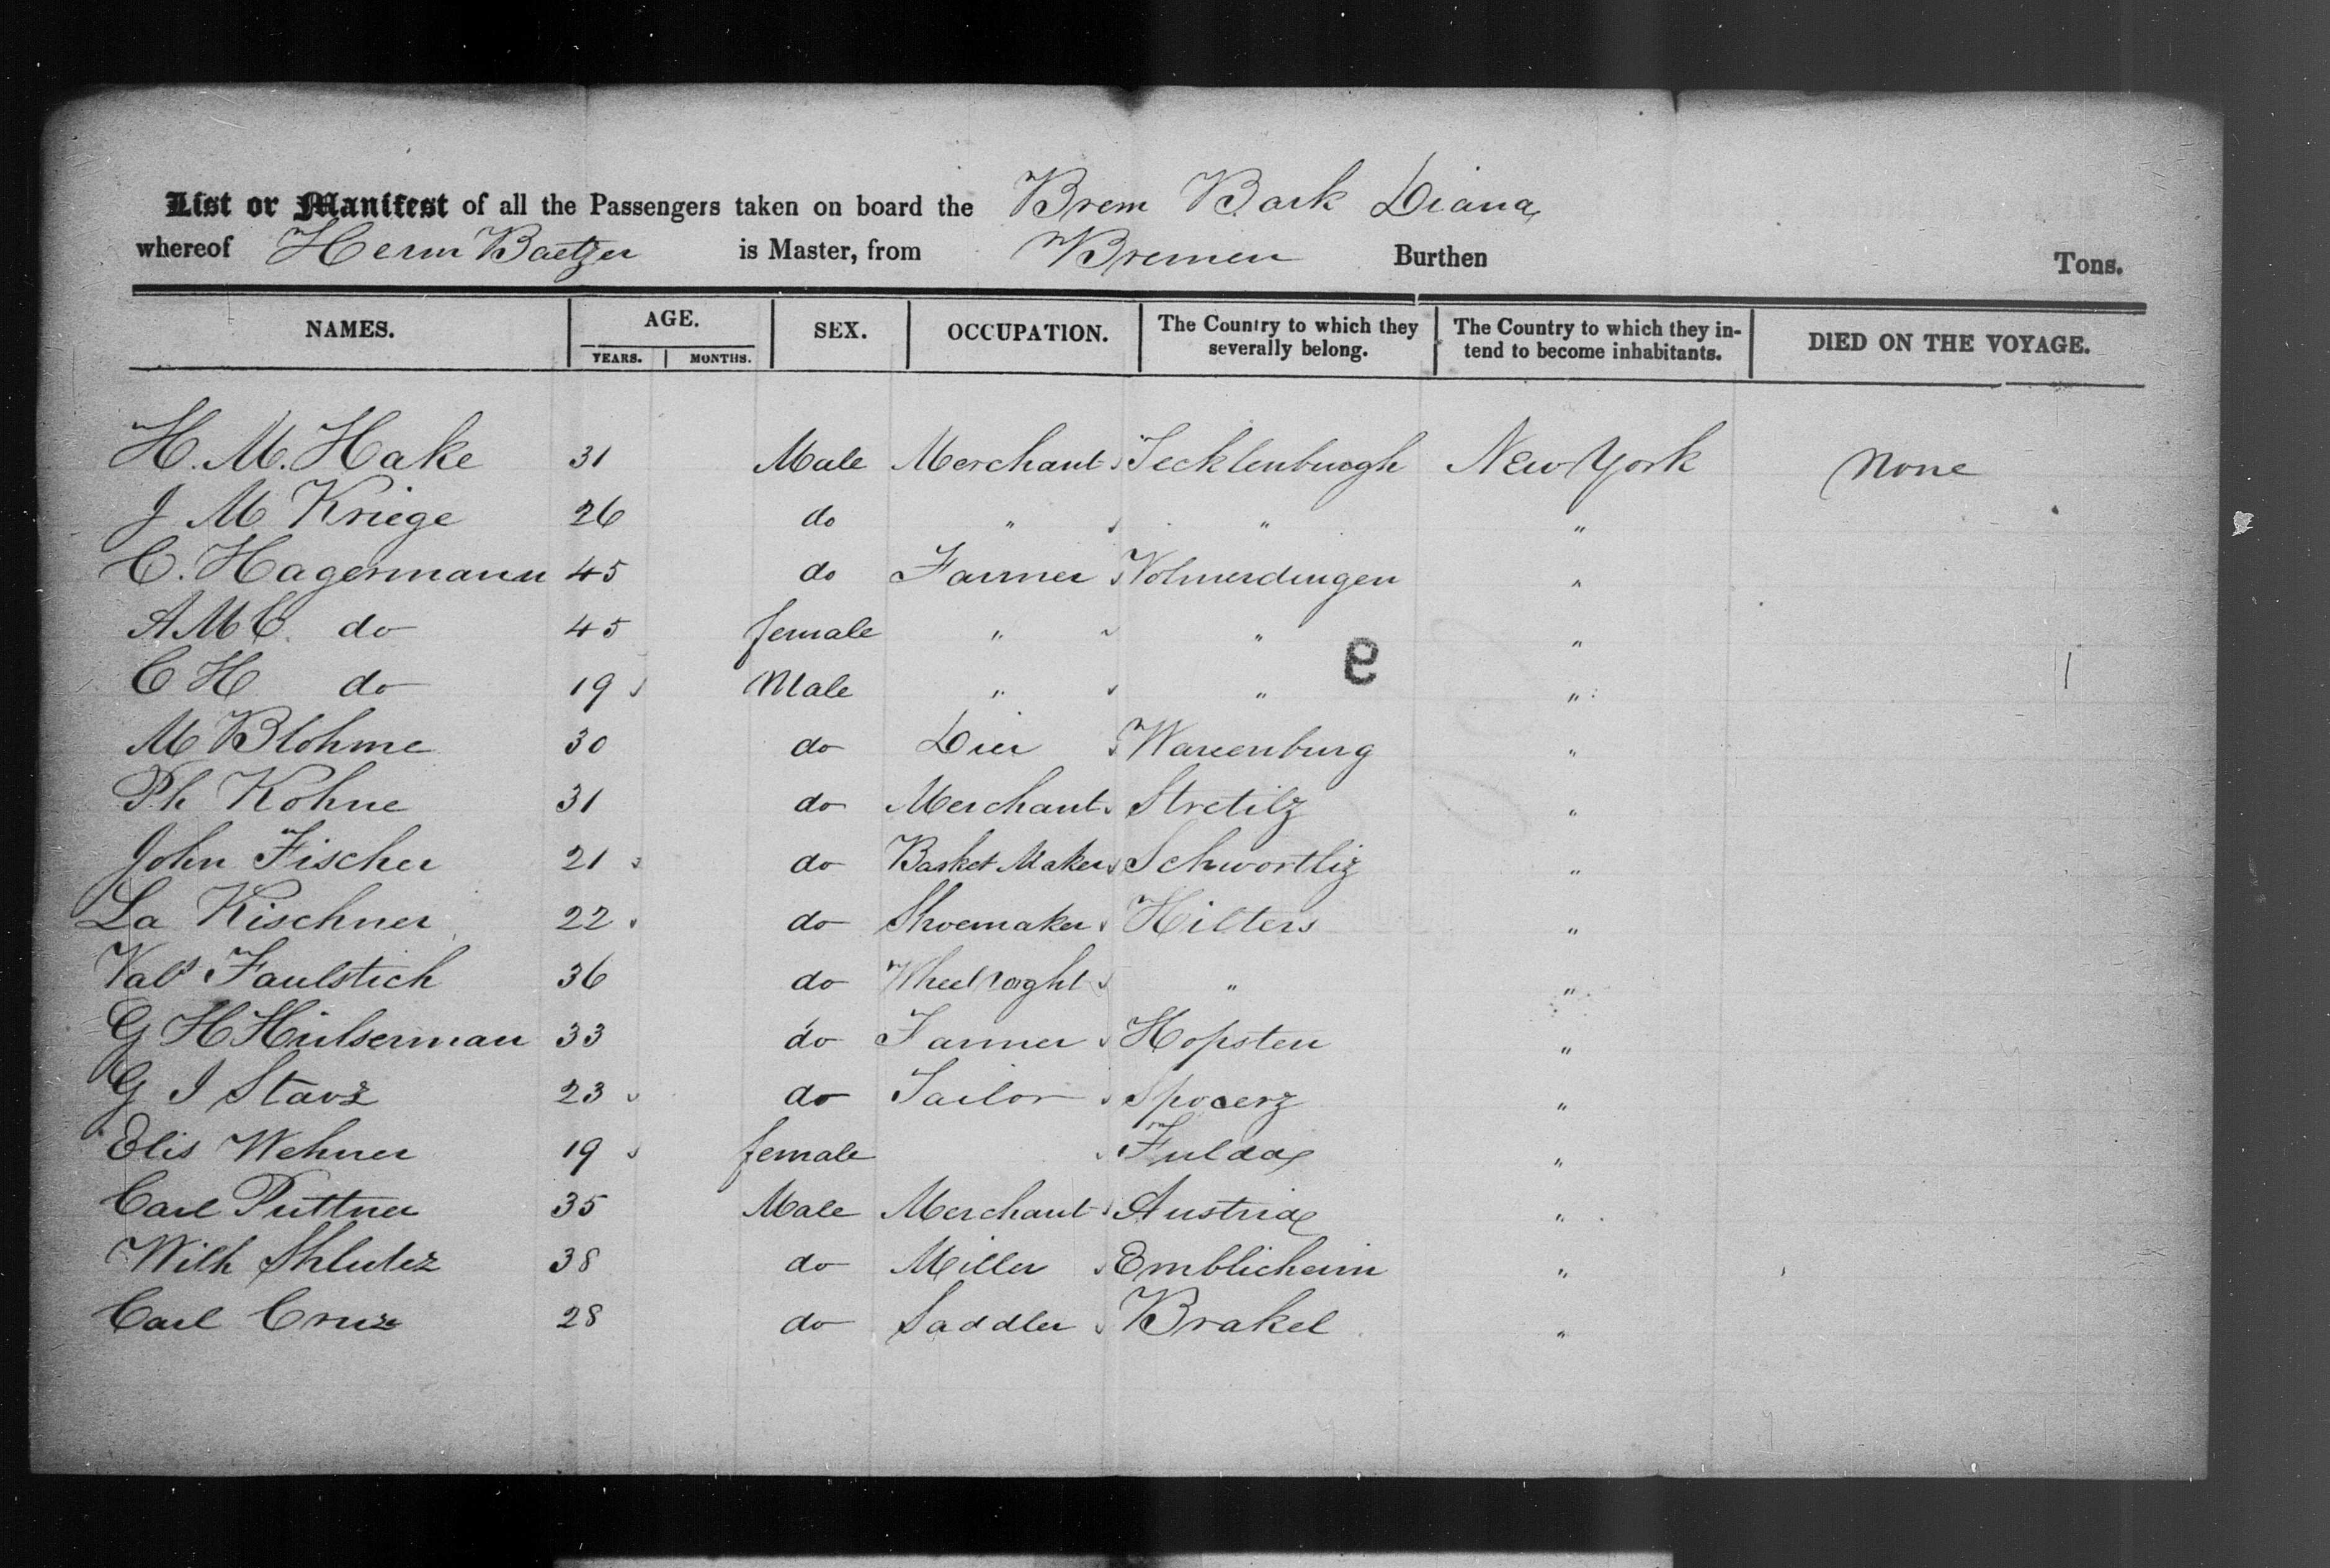 List or Manifest of all the Passengers taken on board the Brem Bark Diana
whereof Herm Baetzer is Master, from Bremen Burthen Tons.
NAMES. AGE. YEARS. MONTHS. SEX. OCCUPATION. The Country to which they severally belong. The Country to which they intend to become inhabitants. DIED ON THE VOYAGE.
H. M. Hake 31 Male Merchant Tecklenburgh New York None
J M Kriege 26 do " " "
C. Hagermann 45 do Farmer Volmerdingen "
A M C. do 45 female " " "
9
C H do 19 Male " " "
M Blohme 30 do Dier "
Ph Kohne 31 do Merchant Stretilz "
John Fischer 21 do Basket Maker Schwortliz "
La Kischner 22 do Shoemaker Hilters "
Val Faulstich 36 do " "
G H Hülserman 33 do Farmer Hopsten "
G I 23 do Tailor "
Elis Wehner 19 female Fulda "
Carl Puttner 35 Male Merchant Austria "
Wilh 38 do Miller Emblicheim "
Carl Cruz 28 do Saddler Brakel "